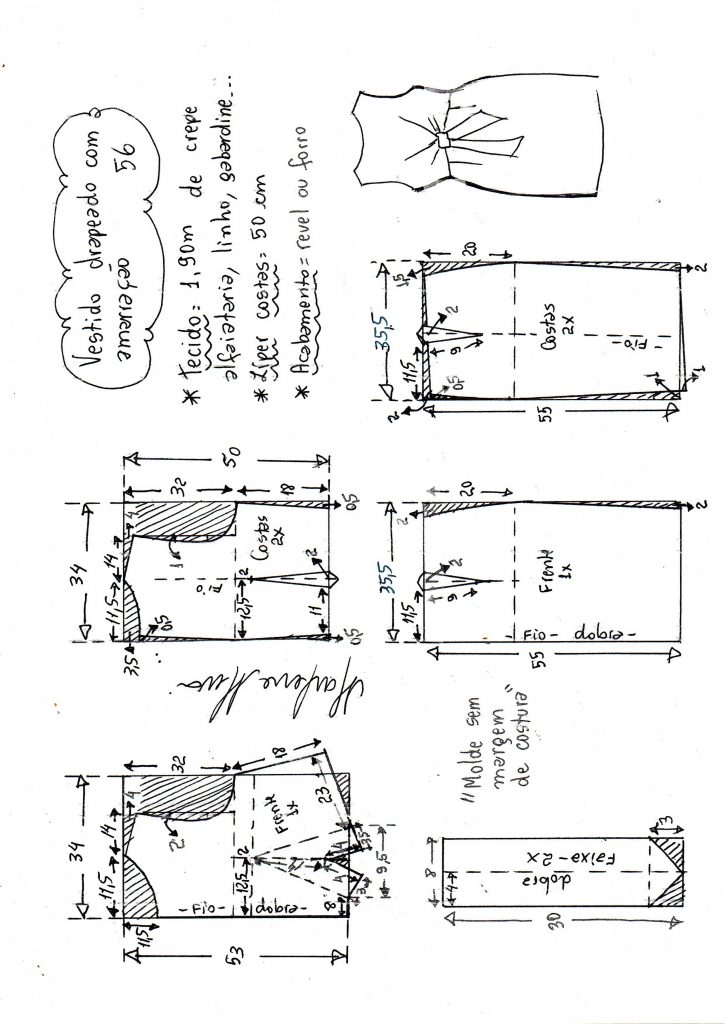 Vestido drapeado com a
amarração 56
* Tecido = 1,90m de crepe
alfaiataria, linho, gabardine...
* Zíper costas = 50 cm
* Acabamento = revel ou forro
34
11,5
14
4
11,5
32
2
53
12,5
2
Frente
1x
18
23
- Fio - dobra -
8
3
4
4
9,5
34
11,5
14
4
3,5
0,5
1
32
50
Fio
Costas
2x
12,5
2
18
11
2
0,5
0,5
"Molde sem
margem
de costura"
8
4
dobra
Faixa - 2x
30
3
35,5
11,5
2
20
9
2
Frente
1x
- Fio - dobra -
55
2
35,5
11,5
1,5
20
2
0,5
9
2
Costas
2x
- Fio -
55
1
1
2